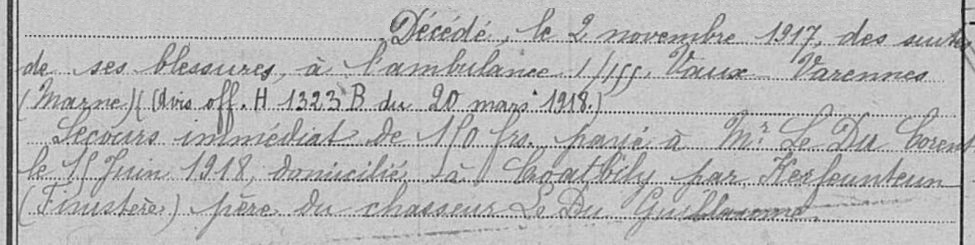 Décédé, le 2 novembre 1917, des suites
de ses blessures, à l'ambulance 1/155, Vaux-Varennes
(Marne) (Avis off. H 1323 B du 20 mars 1918.)
Secours immédiat de 150 frs. payé à Mr Le Du Corent
le 15 Juin 1918, domicilié à par Kerfeunteun
(Finistère) père du chasseur Le Du Guillaume.